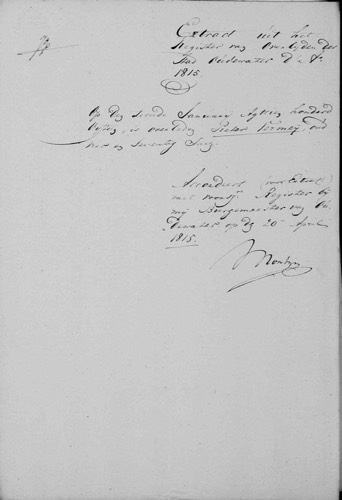 Extract uit het
Register van Overlijden der
Stad Oudewater De Ao
1815.
Op den Januarij Agtien honderd
vijftien, is overleden Pieter Vermeij, oud
en seventig Jaar.
Accordeert
met voorsz. Register bij
mij Burgemeester van Ou
dewater op den 20 April
1815.
Montijn